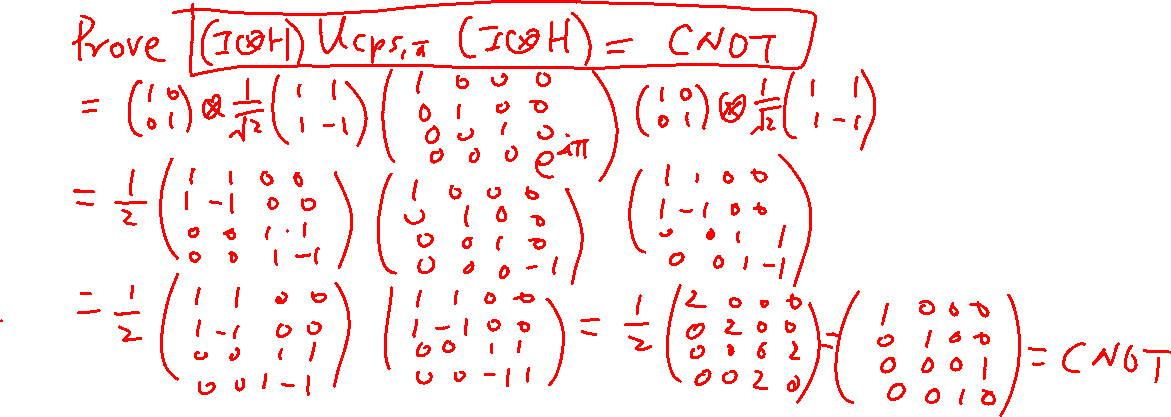 Prove (I⊗H) Ucps,π (I⊗H) = CNOT
= (1 0; 0 1) ⊗ 1/√2 (1 1; 1 -1) (1 0 0 0; 0 1 0 0; 0 0 1 0; 0 0 0 e^{iπ}) (1 0; 0 1) ⊗ 1/√2 (1 1; 1 -1)
= 1/2 (1 1 0 0; 1 -1 0 0; 0 0 1 1; 0 0 1 -1) (1 0 0 0; 0 1 0 0; 0 0 1 0; 0 0 0 -1) (1 1 0 0; 1 -1 0 0; 0 0 1 1; 0 0 1 -1)
= 1/2 (1 1 0 0; 1 -1 0 0; 0 0 1 1; 0 0 1 -1) (1 1 0 0; 1 -1 0 0; 0 0 1 1; 0 0 -1 1) = 1/2 (2 0 0 0; 0 2 0 0; 0 0 0 2; 0 0 2 0) = (1 0 0 0; 0 1 0 0; 0 0 0 1; 0 0 1 0) = CNOT